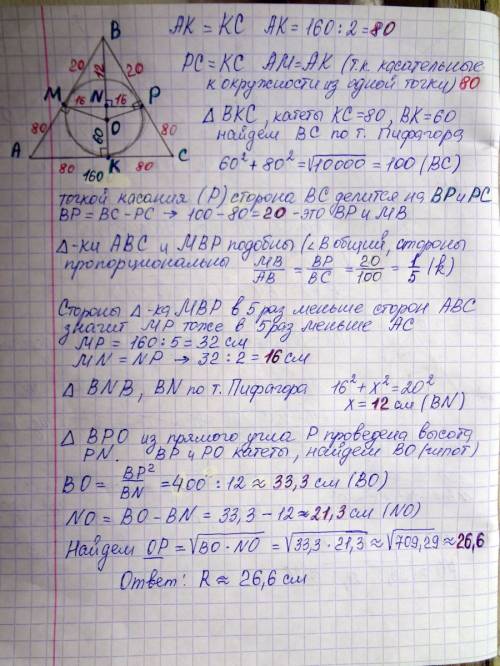 B
20
12
20
M
16
N
16
P
O
80
60
80
A
K
C
80
160
80
AK = KC AK = 160 : 2 = 80
PC = KC AM = AK (т.к. касательные
к окружности из одной точки) 80
Δ BKC, катеты KC = 80, BK = 60
найдем BC по т. Пифагора
60² + 80² = √10000 = 100 (BC)
точкой касания (P) сторона BC делится на BP и PC
BP = BC - PC → 100 - 80 = 20 - это BP и MB
Δ-ки ABC и MBP подобны (∠B общий, стороны
пропорциональны MB/AB = BP/BC = 20/100 = 1/5 (k)
Стороны Δ-ка MBP в 5 раз меньше сторон ABC
значит MP тоже в 5 раз меньше AC
MP = 160 : 5 = 32 см
MN = NP → 32 : 2 = 16 см
Δ BNB, BN по т. Пифагора 16² + x² = 20²
x = 12 см (BN)
Δ BPO из прямого угла P проведена высота
PN. BP и PO катеты, найдем BO (гипот)
BO = BP²/BN = 400 : 12 ≈ 33,3 см (BO)
NO = BO - BN = 33,3 - 12 ≈ 21,3 см (NO)
Найдем OP = √BO · NO = √33,3 · 21,3 ≈ √709,29 ≈ 26,6
Ответ: R ≈ 26,6 см